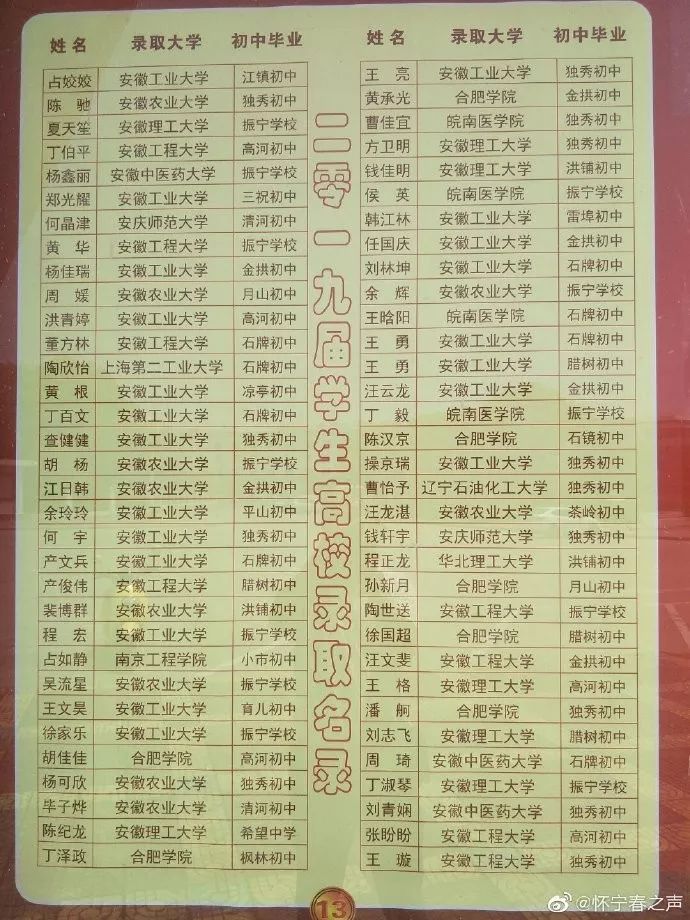 姓名 录取大学 初中毕业
占姣姣 安徽工业大学 江镇初中
陈驰 安徽农业大学 独秀初中
夏天笙 安徽理工大学 振宁学校
丁伯平 安徽工程大学 高河初中
杨鑫丽 安徽中医药大学 振宁学校
郑光耀 安徽工业大学 三祝初中
何晶津 安庆师范大学 清河初中
黄华 安徽工程大学 振宁学校
杨佳瑞 安徽工业大学 金拱初中
周媛 安徽农业大学 月山初中
洪青婷 安徽工业大学 高河初中
董方林 安徽工程大学 石牌初中
陶欣怡 上海第二工业大学 石牌初中
黄根 安徽工业大学 凉亭初中
丁百文 安徽工业大学 石牌初中
查健健 安徽工业大学 独秀初中
胡杨 安徽农业大学 振宁学校
江日韩 安徽农业大学 金拱初中
余玲玲 安徽工业大学 平山初中
何宇 安徽工业大学 独秀初中
产文兵 安徽工业大学 石牌初中
产俊伟 安徽工程大学 腊树初中
裴博群 安徽农业大学 洪铺初中
程宏 安徽工业大学 振宁学校
占如静 南京工程学院 小市初中
吴流星 安徽农业大学 振宁学校
王文昊 安徽工业大学 育儿初中
徐家乐 安徽工业大学 振宁学校
胡佳佳 合肥学院 高河初中
杨可欣 安徽农业大学 独秀初中
毕子烨 安徽农业大学 清河初中
陈纪龙 安徽理工大学 希望中学
丁泽政 合肥学院 枫林初中
二零一九届学生高校录取名录
姓名 录取大学 初中毕业
王亮 安徽工业大学 独秀初中
黄承光 合肥学院 金拱初中
曹佳宜 皖南医学院 独秀初中
方卫明 安徽理工大学 独秀初中
钱佳明 安徽理工大学 洪铺初中
侯英 皖南医学院 振宁学校
韩江林 安徽工业大学 雷埠初中
任国庆 安徽工业大学 金拱初中
刘林坤 安徽工业大学 石牌初中
余辉 安徽农业大学 振宁学校
王晗阳 皖南医学院 石牌初中
王勇 安徽工业大学 石牌初中
王勇 安徽工业大学 腊树初中
汪云龙 安徽工业大学 金拱初中
丁毅 皖南医学院 振宁学校
陈汉京 合肥学院 石镜初中
操京瑞 安徽工业大学 独秀初中
曹怡予 辽宁石油化工大学 独秀初中
汪龙湛 安徽农业大学 茶岭初中
钱轩宇 安庆师范大学 独秀初中
程正龙 华北理工大学 洪铺初中
孙新月 合肥学院 月山初中
陶世送 安徽工程大学 振宁学校
徐国超 合肥学院 腊树初中
汪文斐 安徽工程大学 金拱初中
王格 安徽理工大学 高河初中
潘舸 合肥学院 独秀初中
刘志飞 安徽理工大学 腊树初中
周琦 安徽中医药大学 石牌初中
丁淑琴 安徽理工大学 振宁学校
刘青娴 安徽中医药大学 独秀初中
张盼盼 安徽工程大学 高河初中
王璇 安徽工程大学 独秀初中
13
@怀宁春之声